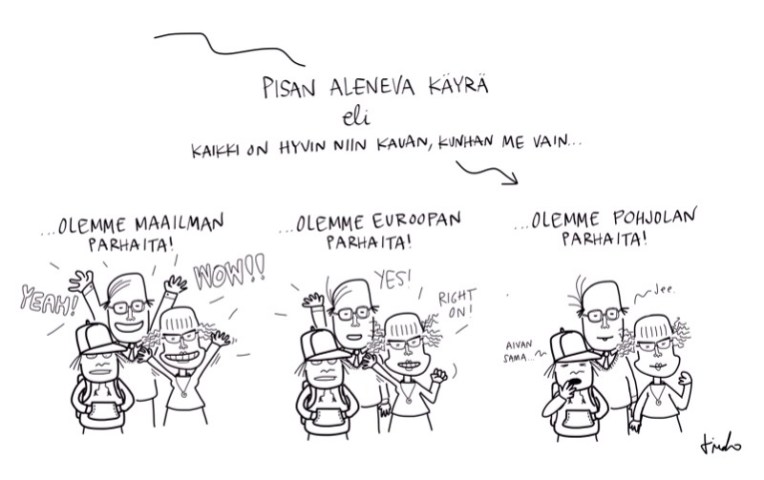 PISAN ALENEVA KÄYRÄ
eli
KAIKKI ON HYVIN NIIN KAUAN, KUNHAN ME VAIN...
...OLEMME MAAILMAN
PARHAITA!
YEAH!
WOW!!
...OLEMME EUROOPAN
PARHAITA!
YES!
RIGHT
ON!
...OLEMME POHJOLAN
PARHAITA!
Jee.
AIVAN
SAMA...